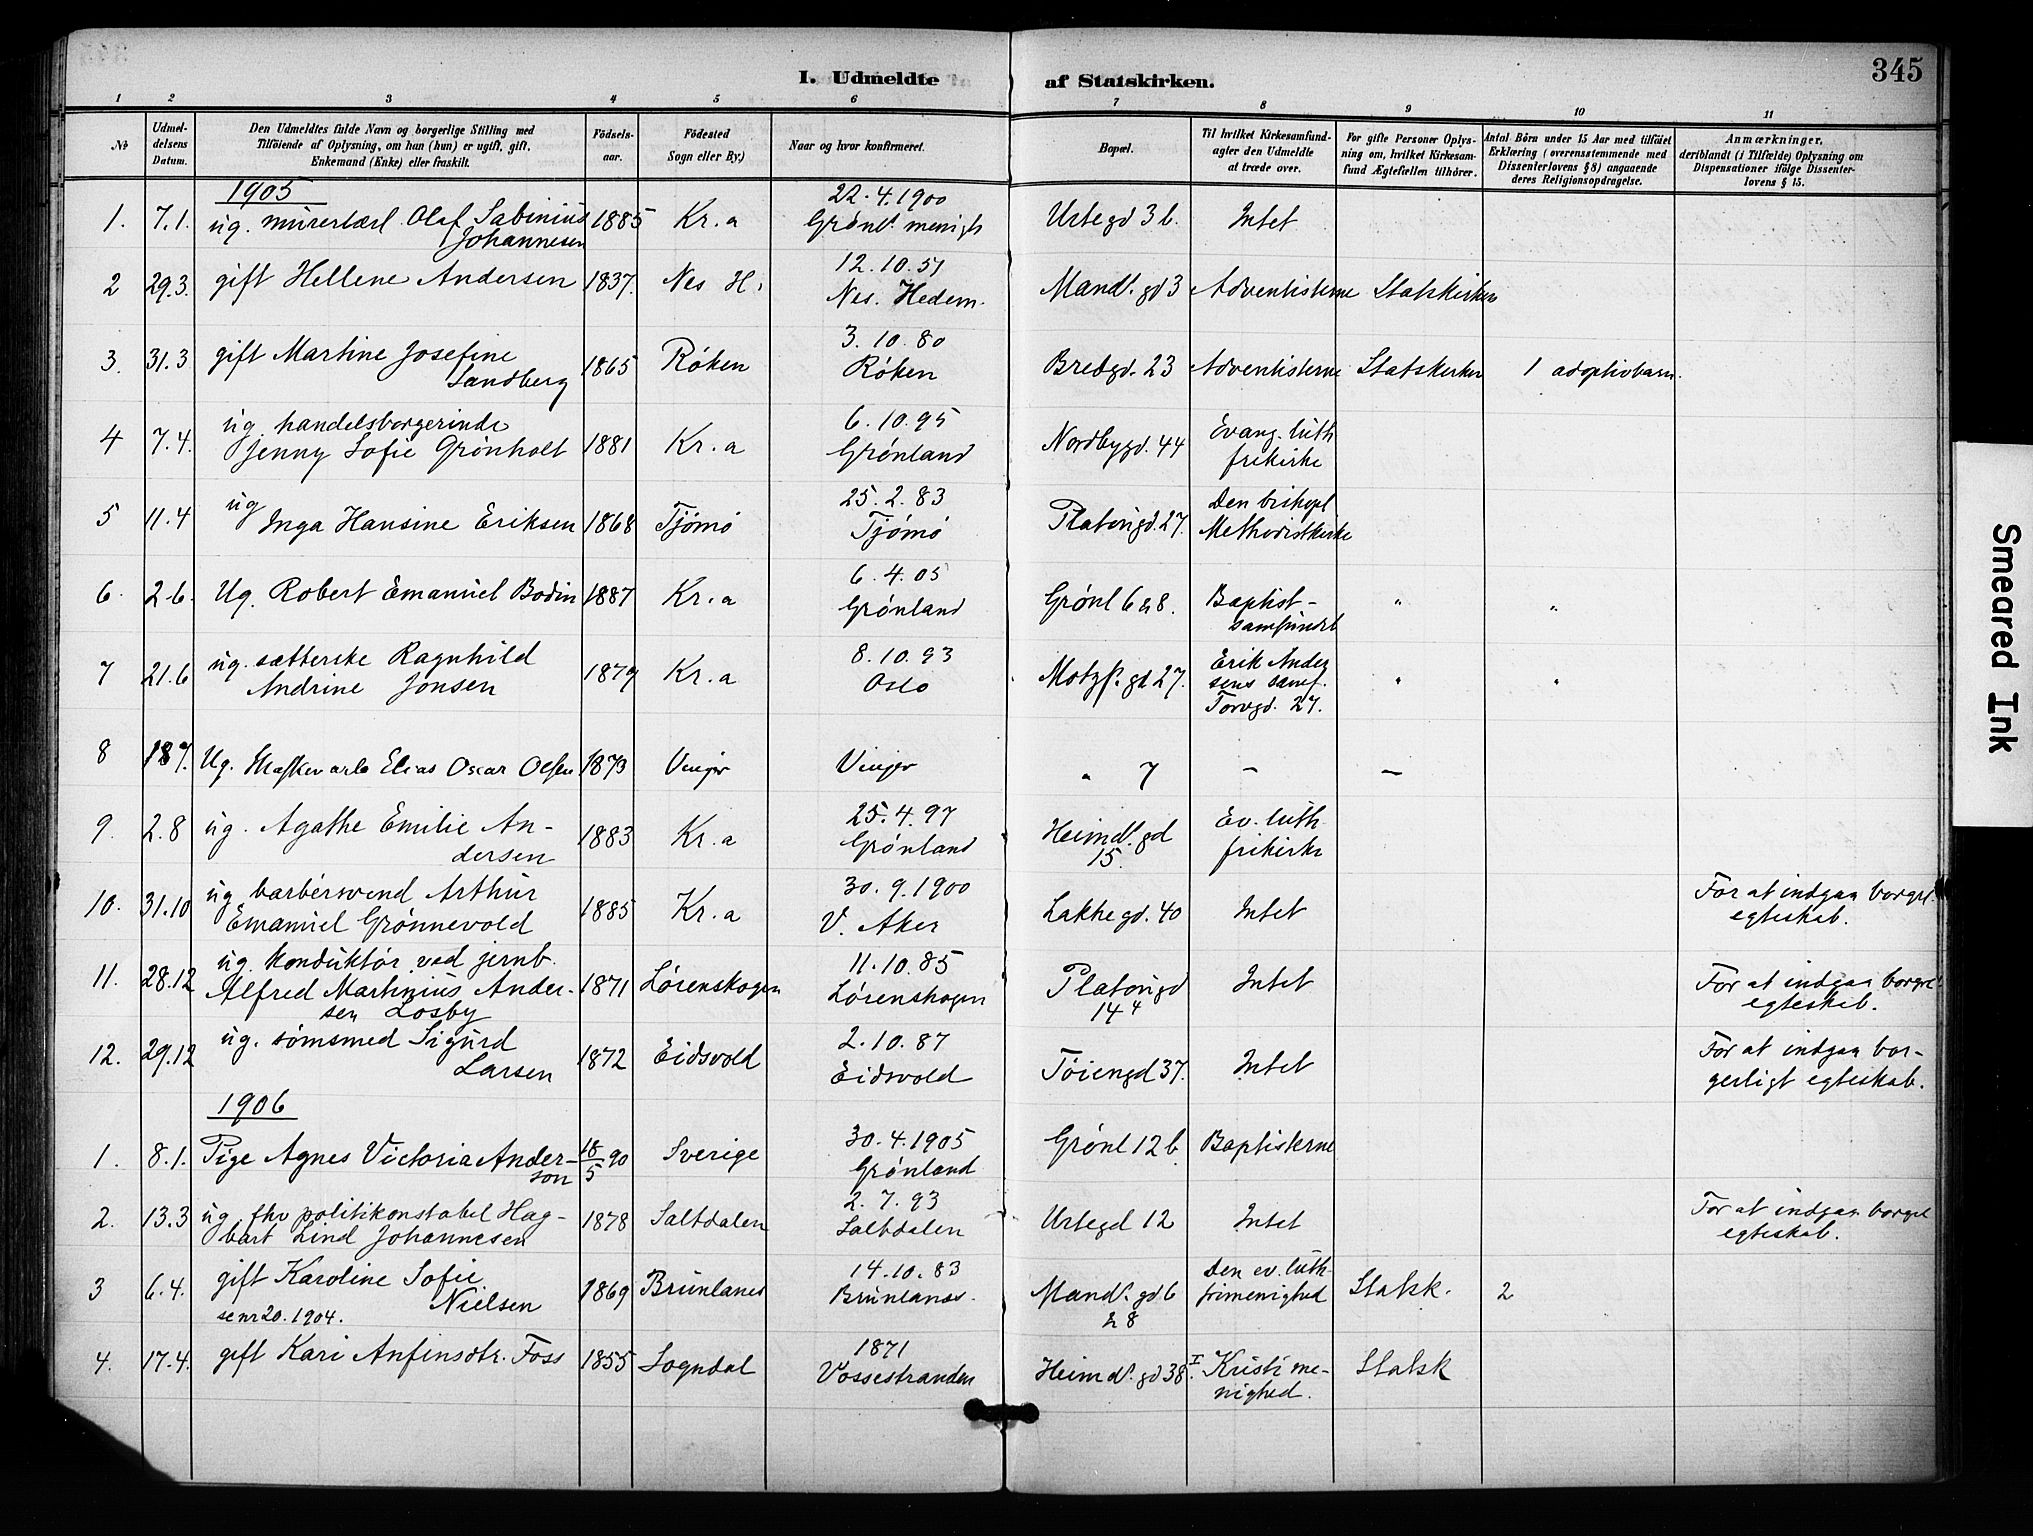 345
I. Udmeldte af Statskirken.
1 2 3 4 5 6 7 8 9 10 11
No
Udmel-
delsens
Datum.
Den Udmeldtes fulde Navn og borgerlige Stilling med
Tilföiende af Oplysning, om han (hun) er ugift, gift,
Enkemand (Enke) eller fraskilt.
Födsels-
aar.
Födested
Sogn eller By.)
Naar og hvor konfirmeret.
Bopæl.
Til hvilket Kirkesamfund-
agter den Udmeldte
at træde over.
For gifte Personer Oplys-
ning om, hvilket Kirkesam-
fund Ægtefællen tilhörer.
Antal Börn under 15 Aar med tilföiet
Erklæring (overensstemmende med
Dissenterlovens § 8) angaaende
deres Religionsopdragelse.
Anmærkninger,
deriblandt (i Tilfælde) Oplysning om
Dispensationer ifölge Dissenter-
lovens § 15.
1905
1. 7.1. ug. murerlærl. Olaf Sabinius
Johannesen
1885 Kr.a
22.4.1900
Grønl. menigh
Urtegd 3 b. Intet
2 29.3. gift Hellene Andersen 1837. Nes H.
12.10.51
Nes. Hedem.
Mandl. gd 3 Adventisterne Statskirken
3. 31.3 gift Martine Josefine
Sandberg
1865 Röken
3.10.80
Röken
Bredgd. 23 Adventisterne Statskirken 1 adoptivbarn.
4 7.4. ug. handelsborgerinde
Jenny Sofie Grönholt
1881 Kr.a
6.10.95
Grönland
Nordbygd. 44
Evang. luth
frikirke
5 11.4 ug
Inga Hansine Eriksen
1868 Tjömö
25.2.83
Tjömö
Platougd. 27.
Den biskopl
Methodistkirke
6. 2.6. Ug. Robert Emanuel Bodin 1887 Kr.a
6.4.05
Grönland
Grönl 6 & 8.
Baptist-
samfundet
" "
7 21.6 ug. sætterske Ragnhild
Andrine Jonsen
1879 Kr.a
8.10.93
Oslo
Motzf. gd 27.
Erik Ander
sens samf.
Torvgd. 27.
" "
8 Ug. Elias Oscar Olsen 1873 Vinger
Vinger
" 7 - -
9. 2.8 ug. Agathe Emilie An-
dersen
1883 Kr.a
25.4.97
Grönland
Heimdl. gd
15.
Ev. luth
frikirke
10. 31.10 ug barbersvend Arthur
Emanuel Grönnevold
1885 Kr.a
30.9.1900
V. Aker
Lakkegd. 40 Intet
For at indgaa borgerl.
egteskab.
11. 28.12 ug. konduktör ved jernb.
Alfred Martinius Ander-
sen Losby
1871 Lörenskogen
11.10.85
Lörenskogen
Platougd
14 4
Intet
For at indgaa borgerl
egteskab.
12. 29.12 ug. sömsmed Sigurd
Larsen
1872 Eidsvold
2.10.87
Eidsvold
Töiengd 37. Intet
For at indgaa bor-
gerligt egteskab.
1906
1. 8.1. Pige Agnes Victoria Ander-
son
18/5 90 Sverige
30.4.1905
Grönland
Grönl 12 b. Baptisterne
2. 13.3 ug. fhv politikonstabel Hag-
bart Lind Johannesen
1878 Saltdalen
2.7.93
Saltdalen
Urtegd 12 Intet
For at indgaa borgerl
egteskab.
3 6.4. gift Karoline Sofie
Nielsen
se nr 20. 1904.
1869 Brunlanes
14.10.83
Brunlanæs.
Mandl. gd 6
& 8
Den ev. luth
frimenighed
Statsk. 2
4. 17.4. gift Kari Anfinsdtr. Foss 1855 Sogndal
1871
Vossestranden
Heimdl. gd 38 I.
Kristi me-
nighed.
Statsk
Smeared Ink